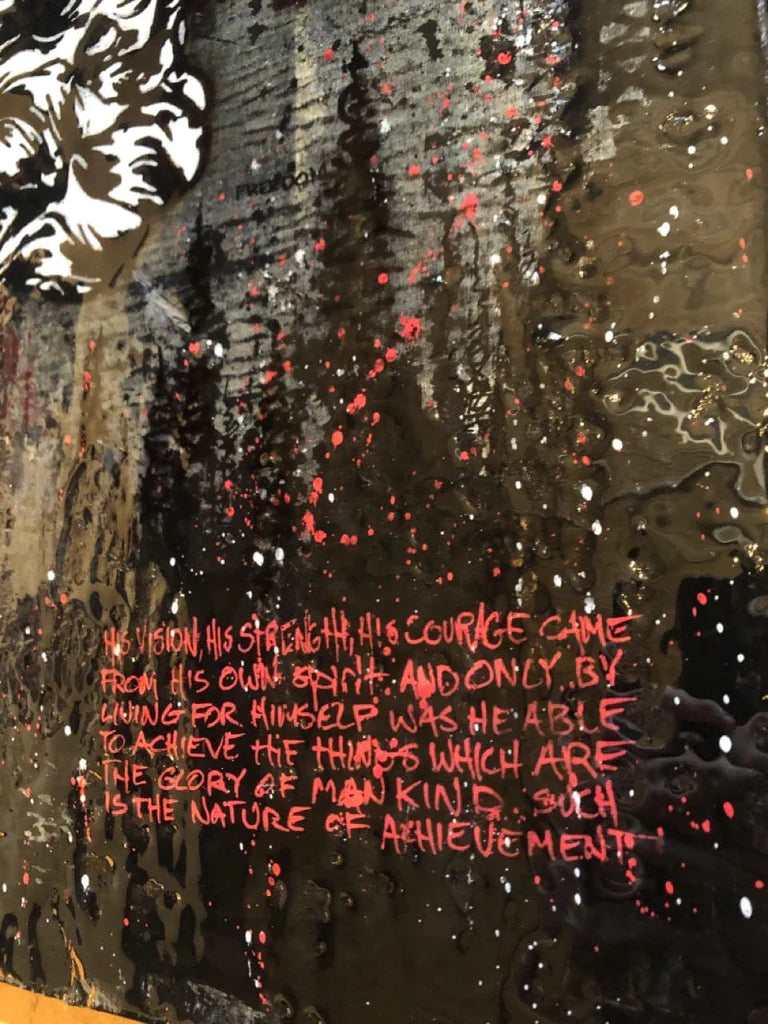 FREEDOM
HIS VISION, HIS STRENGTH, HIS COURAGE CAME
FROM HIS OWN spirit. AND ONLY BY
LIVING FOR HIMSELF WAS HE ABLE
TO ACHIEVE THE THINGS WHICH ARE
THE GLORY OF MANKIND. SUCH
IS THE NATURE OF ACHIEVEMENT